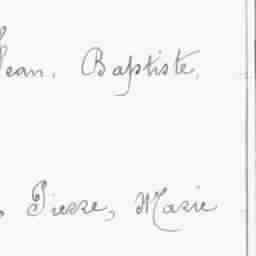 Jean, Baptiste,
, Pierre, Marie